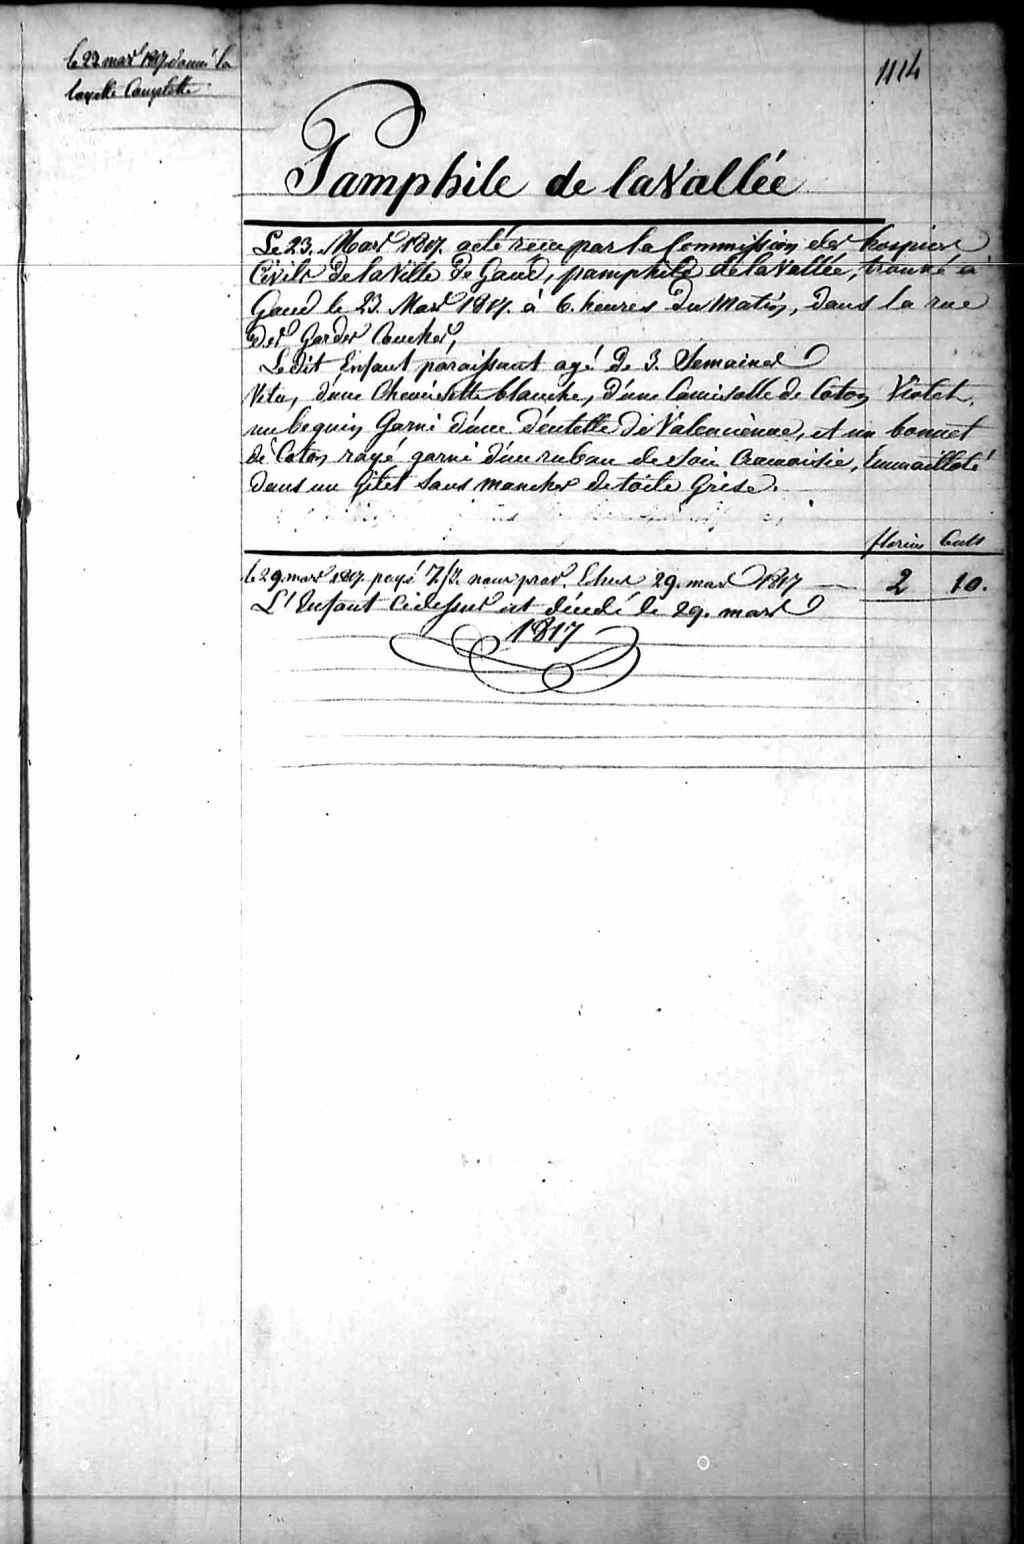 le 23 mars 1817 donné la
layette Complette
1114
Pamphile de laVallée
Le 23. Mars 1817. aeté reçu par la Commission des hospices
Civils de la Ville de Gand, pamphile de la Vallée, trouvé à
Gand le 23. Mars 1817. à 6. heures du Matin, dans la rue
des Gardes Couches,
Ledit Enfant paraissant agé de 3. Semaines
Vetu, d'une Chemisette blanche, d'une Camisolle de Coton Violet,
un beguin Garni d'une déntelle de Valencienne, et un bonnet
de Coton rayé garni d'un ruban de Soie Cramoisie, Emmailloté
dans un Gilet Sans manches de toile Grise.
florins Cents
le 29. mars 1817 payé 7/J. nour prov. Echus 29. mars 1817 2 10.
L'Enfant Cidessus est décédé le 29. mars
1817